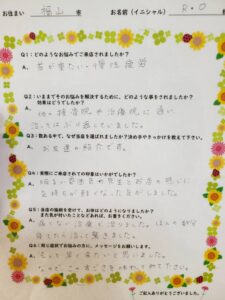 お住まい 福山 市 お名前(イニシャル) R.O 様
Q1:どのようなお悩みでご来店されましたか?
A、首が重たい・慢性疲労
Q2:いままでそのお悩みを解決するために、どのような事をされましたか?
効果はどうでしたか?
A、他の接骨院や治療院に通い
治ってはぶり返していました。
Q3:数ある中で、なぜ当店を選ばれましたか?決め手やきっかけを教えて下さい。
A、お友達の紹介です。
Q4:実際にご来店されての印象はいかがでしたか?
A、明るい雰囲気の先生とお店の感じに
気持ちが軽くなった気がしました。
Q5:当店の施術を受けて、お体はどのようになりましたか?
また気が付いたことなどあれば、お書きください。
A、痛くない治療で治りました。ほんの数分
Q6:同じ症状でお悩みの方に、メッセージをお願いします。
A、もっと早く来たらいいと思いました。
ご記入ありがとうございました。